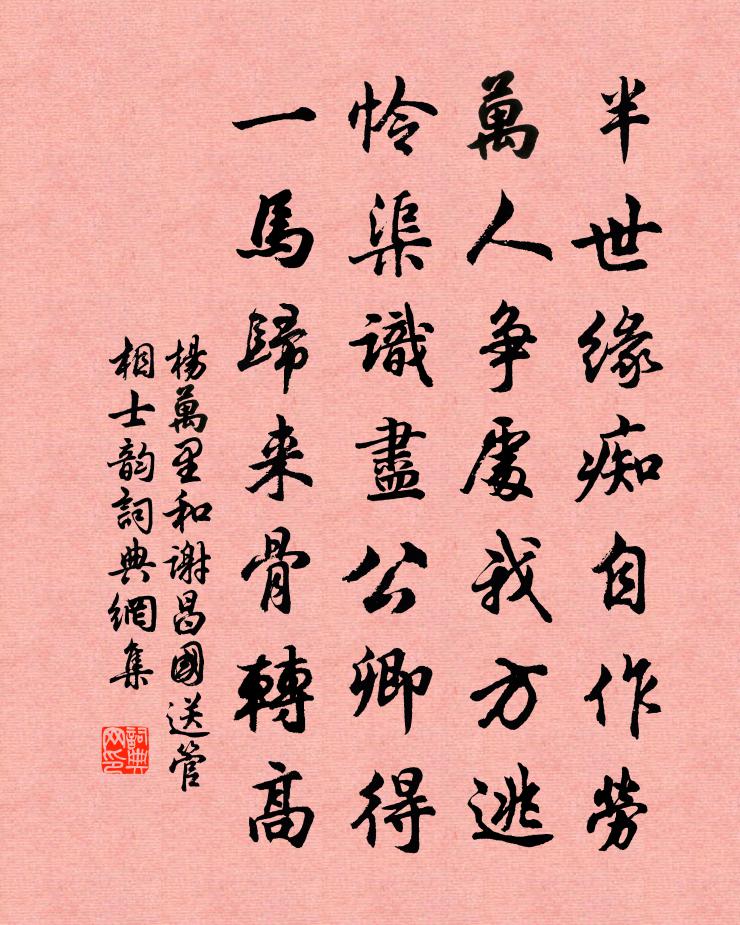 半世緣痴自作勞
萬人爭處我方逃
怜渠識盡公卿得
一馬歸来骨轉高
楊萬里和謝昌國送管
相士韵詞典網集
詞典网印